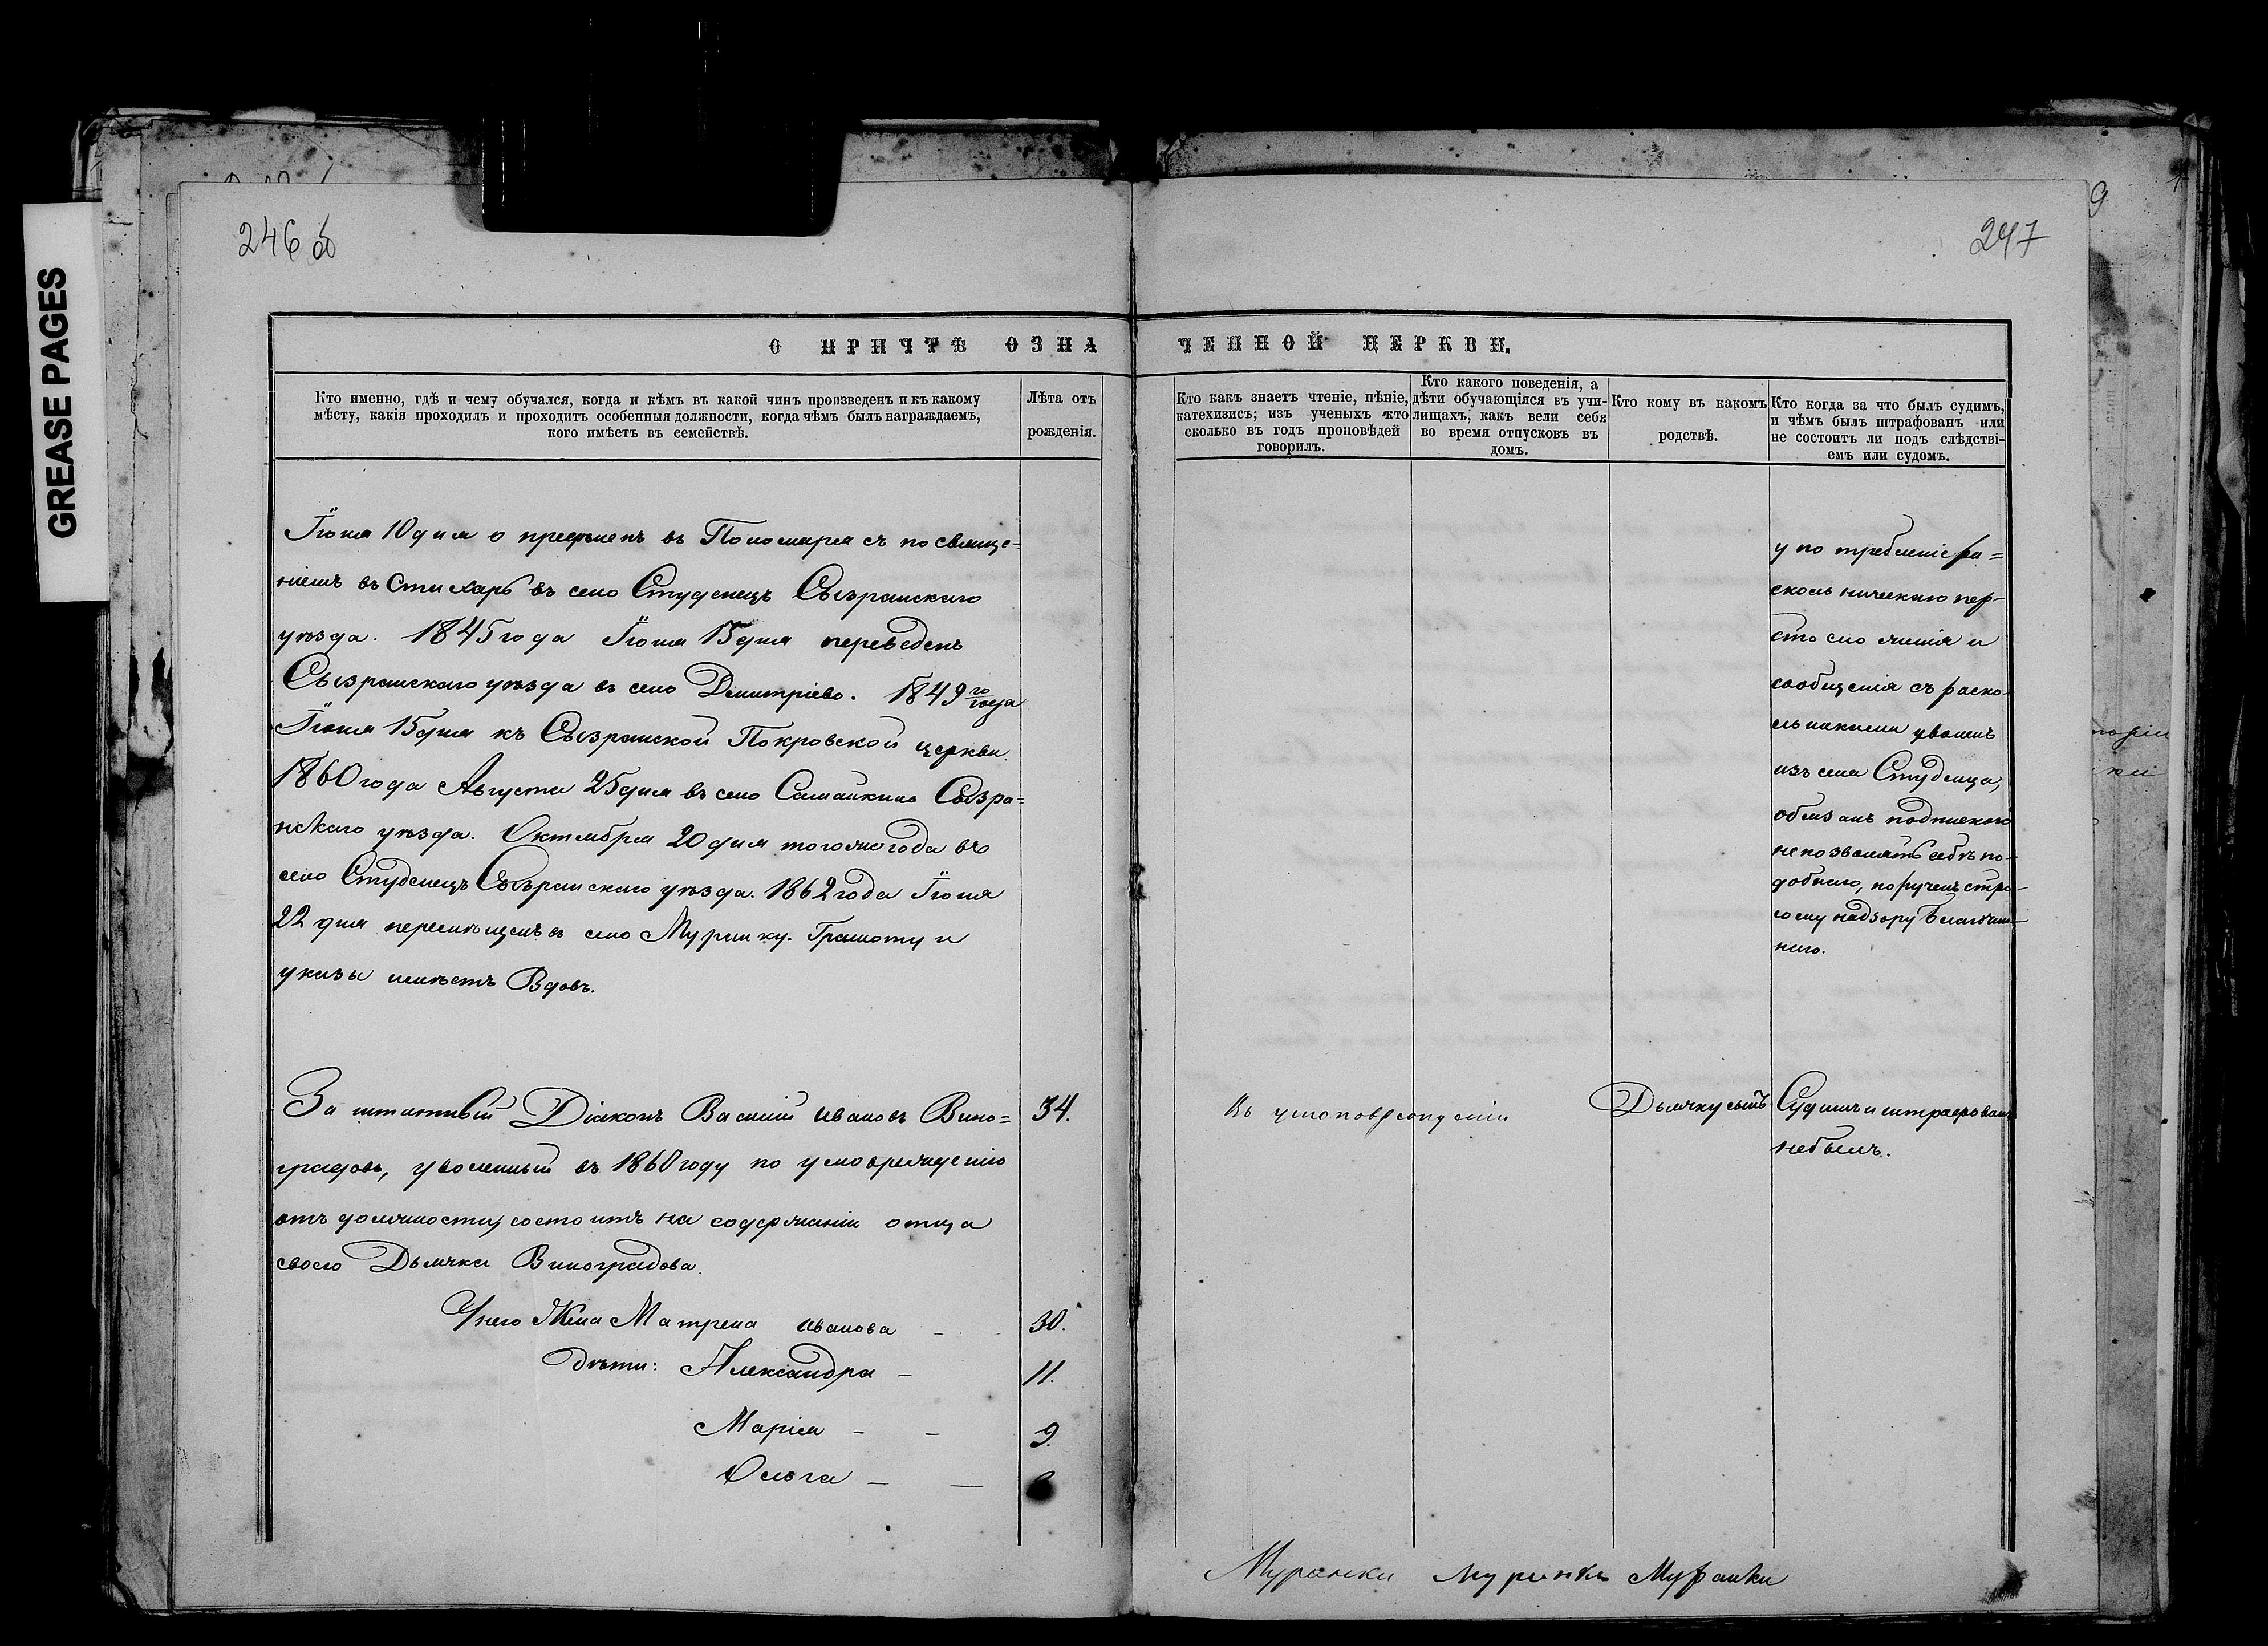 GREASE PAGES
246 об
247
О ПРИЧТѢ ОЗНА
ЧЕННОЙ ЦЕРКВИ.
Кто именно, гдѣ и чему обучался, когда и кѣмъ въ какой чинъ произведенъ и къ какому
мѣсту, какія проходилъ и проходитъ особенныя должности, когда чѣмъ былъ награждаемъ,
кого имѣетъ въ семействѣ.
Лѣта отъ
рожденія.
Кто какъ знаетъ чтеніе, пѣніе,
катехизисъ; изъ ученыхъ кто
сколько въ годъ проповѣдей
говорилъ.
Кто какого поведенія, а
дѣти обучающіяся въ учи-
лищахъ, какъ вели себя
во время отпусковъ въ
домъ.
Кто кому въ какомъ
родствѣ.
Кто когда за что былъ судимъ,
и чѣмъ былъ штрафованъ или
не состоитъ ли подъ слѣдстві-
емъ или судомъ.
Іюня 10 дня опредѣленъ въ Пономаря съ посвяще=
ніемъ въ Стихарь въ село Студенецъ Сызранскаго
уѣзда. 1845 года Іюня 15 дня переведенъ
Сызранскаго уѣзда въ село Димитріево. 1849 го года
Іюня 15 дня къ Сызранской Покровской церкви.
1860 года Августа 25 дня въ село Самайкино Сызра=
нскаго уѣзда. Октября 20 дня того же года въ
село Студенецъ Сызранскаго уѣзда. 1862 года Іюня
22 дня перемѣщенъ въ село Муранку. Грамоту и
указы имѣетъ Вдовъ.
употребленіе ра=
скольническаго пер-
стосложенія и
сообщенія съ раско-
льниками уволенъ
изъ села Студенца,
обязанъ подпискою
не позволять себѣ по-
добнаго, порученъ стро-
гому надзору Благочин-
наго.
Заштатный Діаконъ Василій Ивановъ Вино=
градовъ, уволенный въ 1860 году по умоврежденію
отъ должности, состоитъ на содержаніи отца
своего Дьячка Виноградова.
34.
Въ умоповрежденіи
Дьячку сынъ
Судимъ и штрафованъ
не былъ.
У него Жена Матрена Иванова - - 30.
Дѣти: Александра - 11.
Марія - - 9.
Ольга - -
Муранки Муранки Муранки